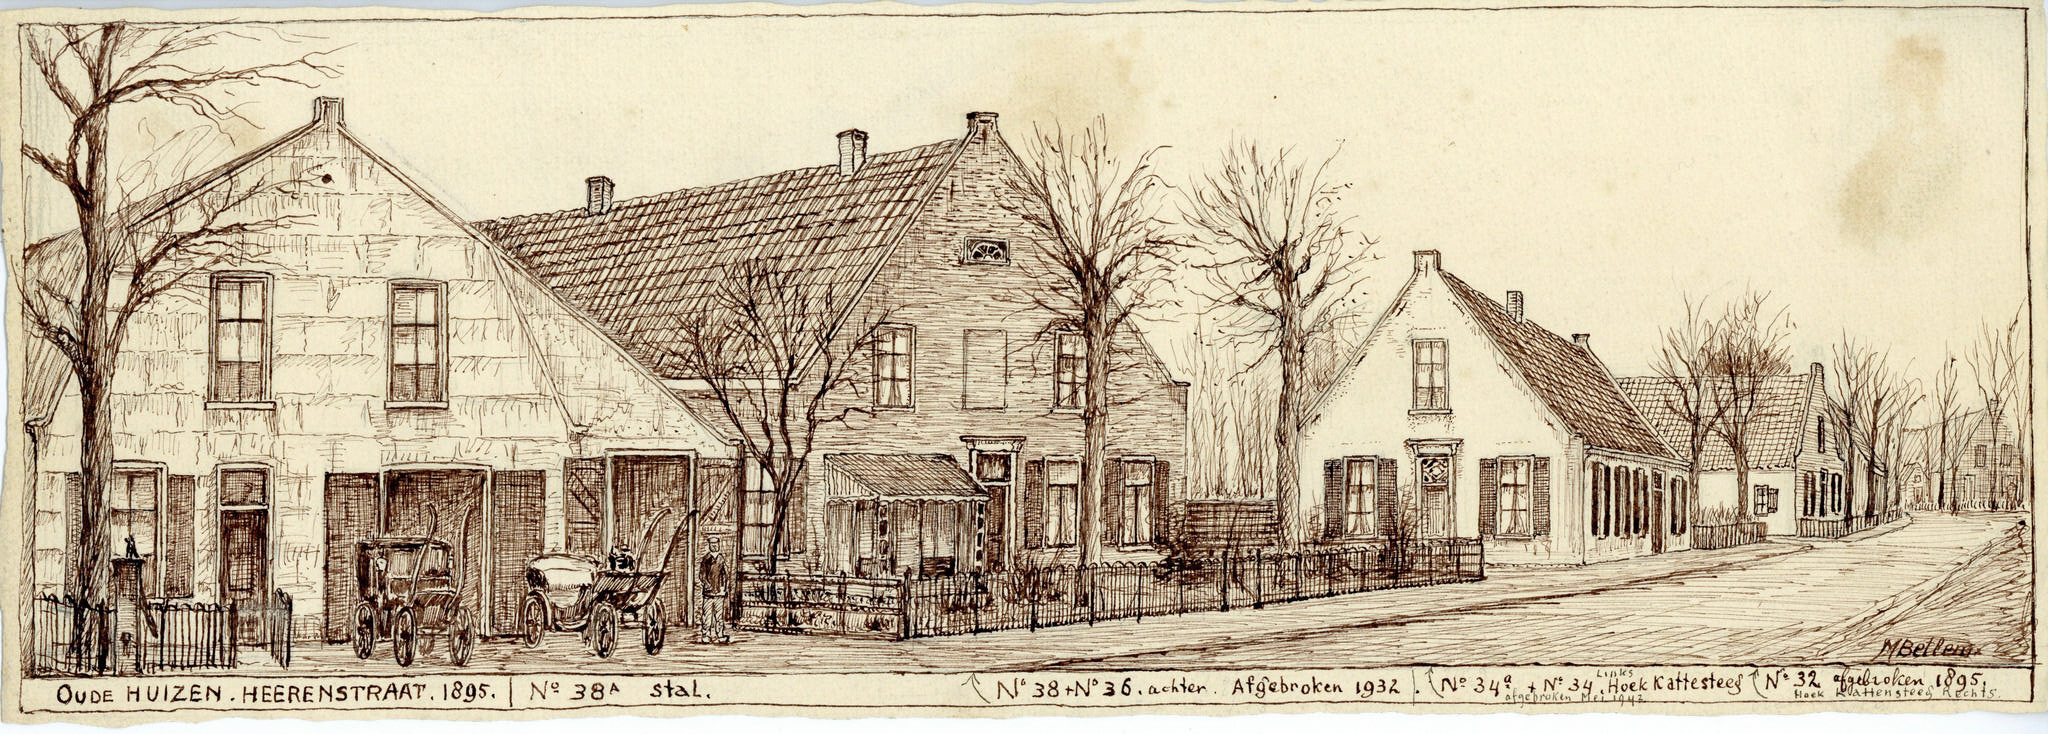 M Bellem.
OUDE HUIZEN. HEERENSTRAAT. 1895. | Nº 38A stal. Nº 38 + Nº 36. achter. Afgebroken 1932 |. Nº 34a + Nº 34. Links Hoek Kattesteeg Nº 32 afgebroken 1895.
afgebroken Mei 1942 Hoek Kattensteeg Rechts.